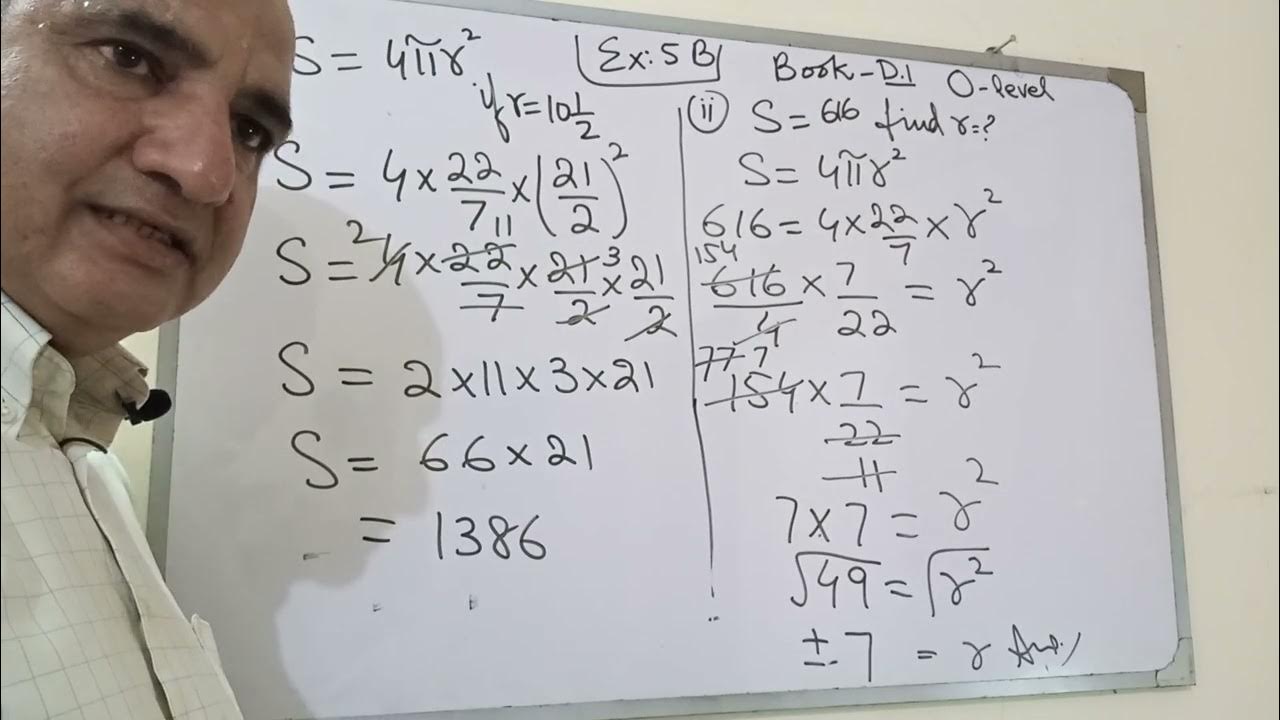 Ex: 5 B Book-D.1 O-level
S = 4πr²
if r = 10 1/2
S = 4 × 22/7 × (21/2)²
11
S = 2 4 × 22/7 × 21/2 3 × 21/2
S = 2 × 11 × 3 × 21
S = 66 × 21
= 1386
(ii) S = 616 find r = ?
S = 4πr²
616 = 4 × 22/7 × r²
154
616/4 × 7/22 = r²
77 7
154 × 7/22 = r²
11
7 × 7 = r²
√49 = √r²
± 7 = r Ans/